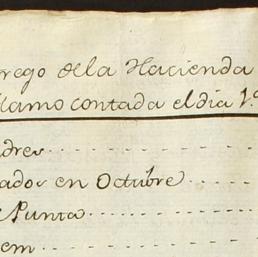 rego de la Hacienda
llamo contada el dia 1.º
dres
ados en Octubre
e Punta
em